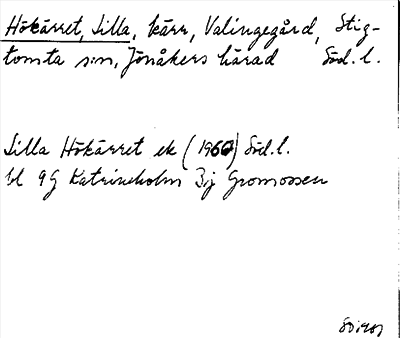 Hökärret, Lilla, kärr, Valingegård, Stig-
tomta sn, Jönåkers härad Söd.l.
Lilla Hökärret ek (1960) Söd.l.
bl 9G Katrineholm 3ij Gromossen